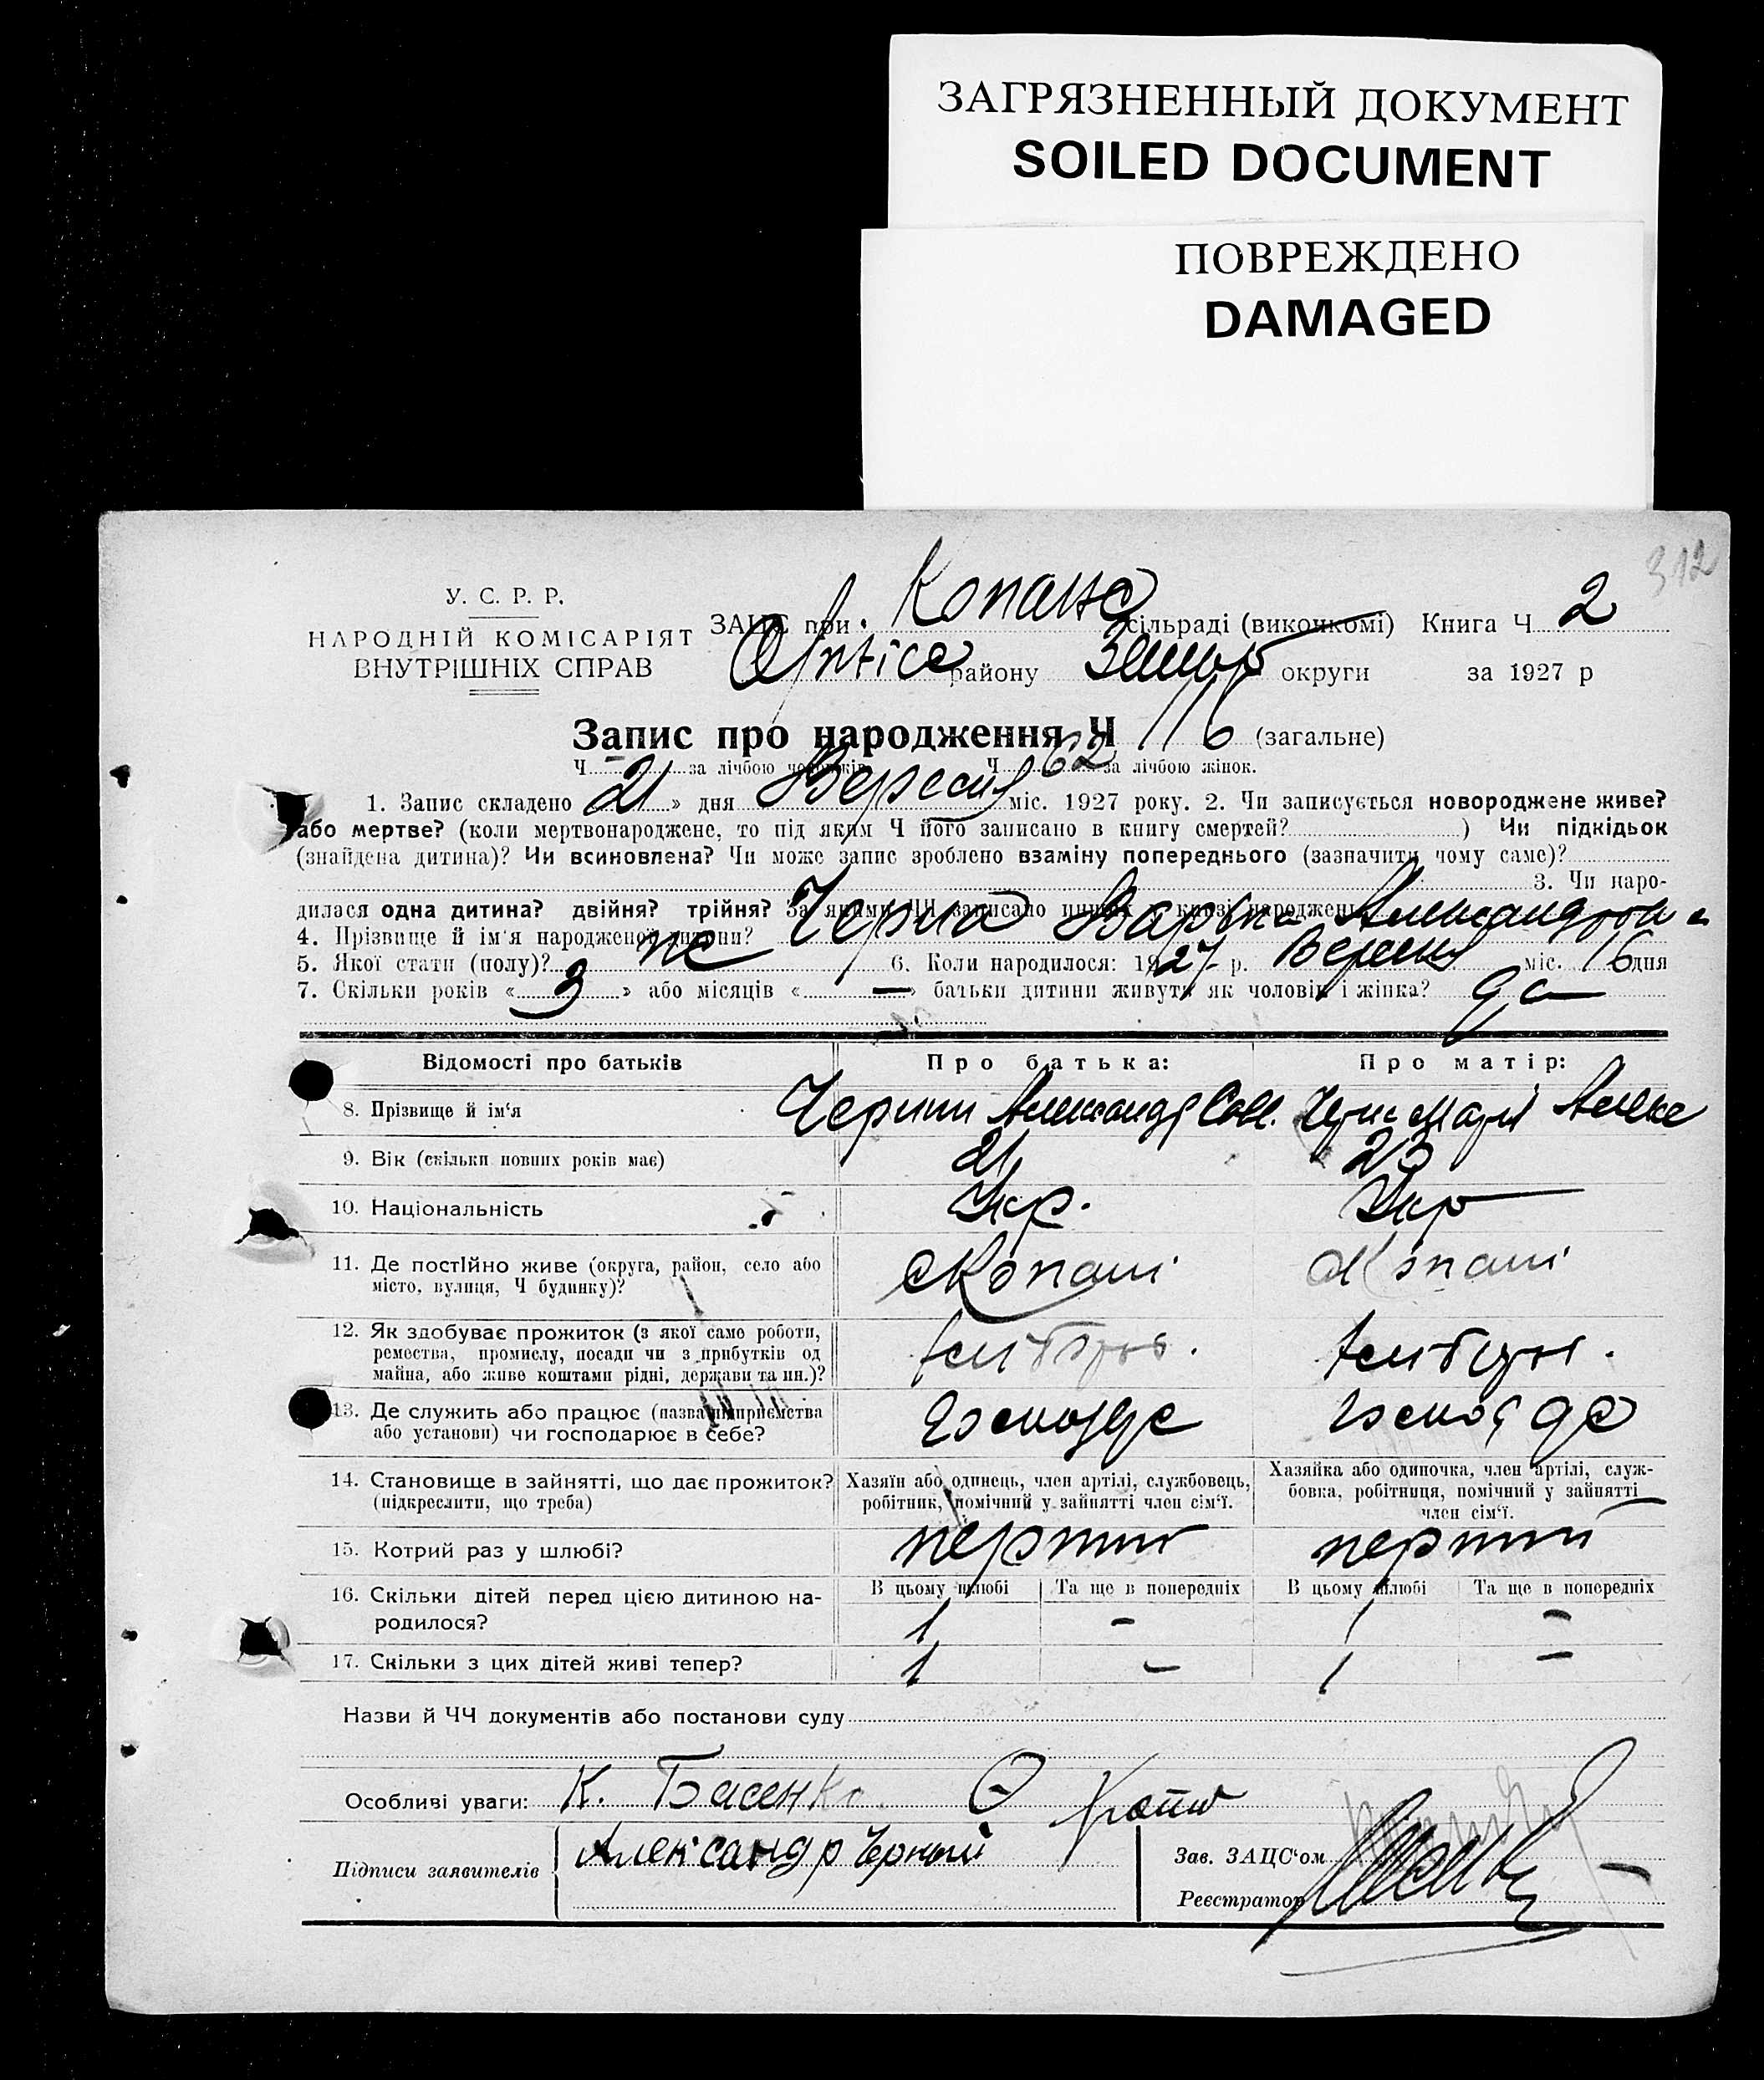 ЗАГРЯЗНЕННЫЙ ДОКУМЕНТ
SOILED DOCUMENT
ПОВРЕЖДЕНО
DAMAGED
312
У. С. Р. Р.
НАРОДНІЙ КОМІСАРІЯТ
ВНУТРІШНІХ СПРАВ
ЗАЦС при Копанс сільраді (виконкомі) Книга Ч 2
району округи за 1927 р
Запис про народження Ч 116 (загальне)
Ч. — за лічбою чоловіків Ч. 62 за лічбою жінок.
1. Запис складено « 21 » дня Вересня міс. 1927 року. 2. Чи записується новороджене живе?
або мертве? (коли мертвонароджене, то під яким Ч його записано в книгу смертей? ) Чи підкідьок
(знайдена дитина)? Чи всиновлена? Чи може запис зроблено взаміну попереднього (зазначити чому саме)?
3. Чи наро-
дилася одна дитина? двійня? трійня? За якими ЧЧ записано инших у книзі народжень
4. Прізвище й ім'я народженої дитини? Черна Варка Александрон а
5. Якої стати (полу)? же 6. Коли народилося: 1927 р. Вересня міс. 16 дня
7. Скільки років « 3 » або місяців « — » батьки дитини живуть як чоловік і жінка? да
Відомості про батьків Про батька: Про матір:
8. Прізвище й ім'я Черний Александр Сав. Марія
9. Вік (скільки повних років має) 21 23
10. Національність Укр. Укр
11. Де постійно живе (округа, район, село або Копані Копані
місто, вулиця, Ч будинку)?
12. Як здобуває прожиток (з якої само роботи,
ремества, промислу, посади чи з прибутків од
майна, або живе коштами рідні, держави та ин.)?
13. Де служить або працює (назва підприємства
або установи) чи господарює в себе?
14. Становище в зайнятті, що дає прожиток? Хазяїн або одинець, член артілі, службовець, Хазяйка або одиночка, член артілі, служ-
(підкреслити, що треба) робітник, помічний у зайнятті член сім'ї. бовка, робітниця, помічний у зайнятті
член сім'ї.
15. Котрий раз у шлюбі? перший перший
16. Скільки дітей перед цією дитиною на- В цьому шлюбі Та ще в попередніх В цьому шлюбі Та ще в попередніх
родилося? 1 – 1 –
17. Скільки з цих дітей живі тепер? 1 – 1 –
Назви й ЧЧ документів або постанови суду
Особливі уваги: К. Басенко
Підписи заявителів Александр Чорный Зав. ЗАЦС'ом
Реєстратор